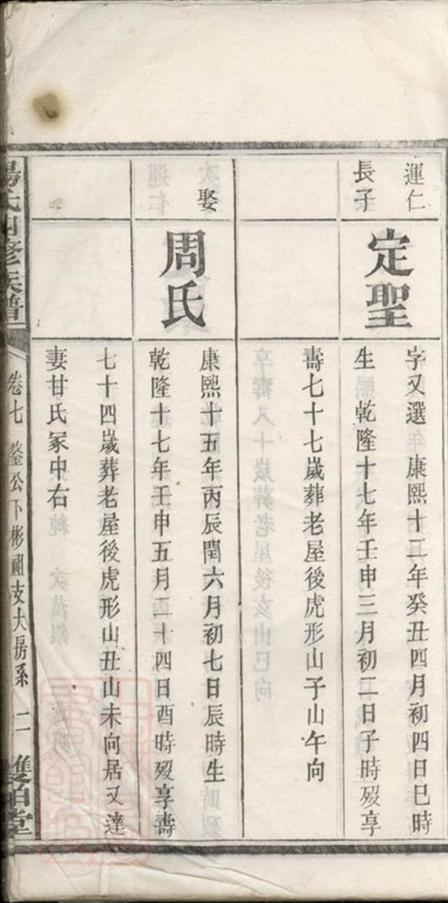 運仁
長子
定聖
字又選 康熙十二年癸丑四月初四日巳時
生 乾隆十七年壬申三月初二日子時歿享
壽七十七歲葬老屋後虎形山子山午向
娶
周氏
康熙十五年丙辰閏六月初七日辰時生
乾隆十七年壬申五月二十四日酉時歿享壽
七十四歲葬老屋後虎形山丑山未向居又達
妻甘氏冢中右
氏四修族譜 卷七 公下彬祖支大房系 二 雙柏堂